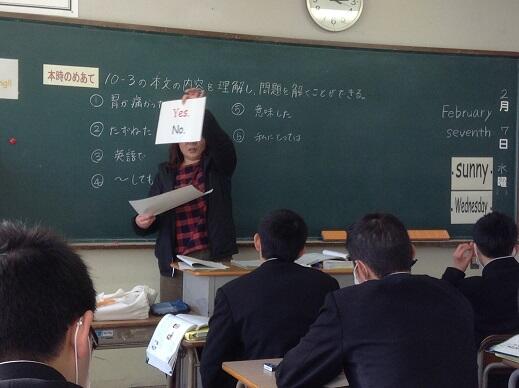 本時のめあて
10-3の本文の内容を理解し、問題を解くことができる。
① 胃が痛かった
② たずねた
③ 英語で
④ ～しても
⑤ 意味した
⑥ 私にとっては
Yes.
No.
2月7日水
February
seventh
sunny
Wednesday